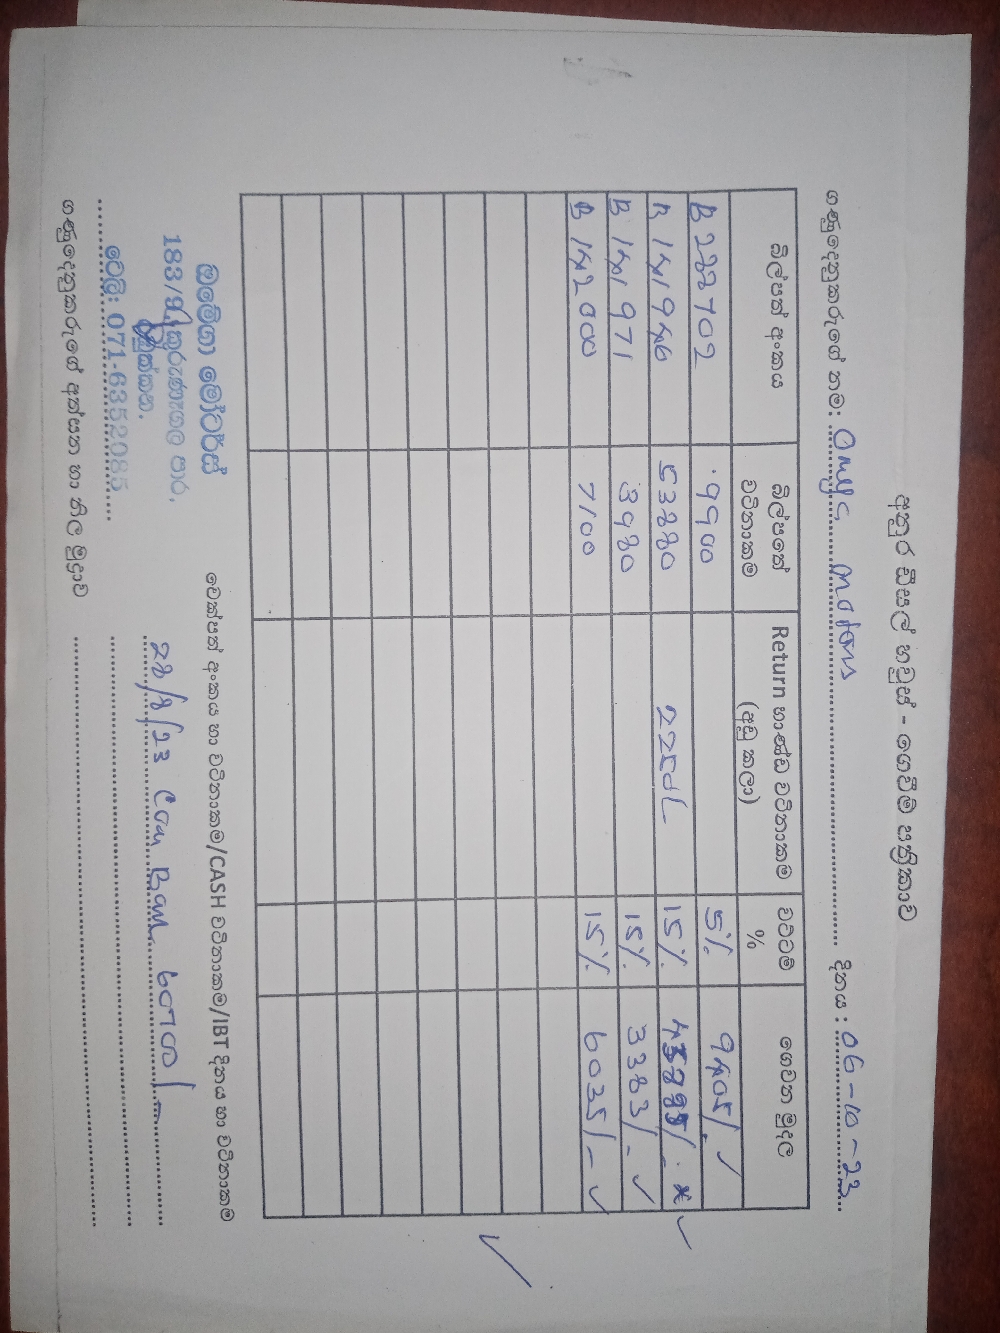 අනුර ඩීසල් හවුස් - ගෙවීම් පත්‍රිකාව
ගණුදෙනුකරුගේ නම: Omega Motors දිනය: 06-10-23
බිල්පත් අංකය බිල්පතේ වටිනාකම Return භාණ්ඩ වටිනාකම (අඩු කලා) වට්ටම් % ගෙවන මුදල
B 222702 9900 5% 9405/-
B 141946 53880 225/- 15%
B 141971 3980 15% 3383/-
B 142000 7100 15% 6035/-
චෙක්පත් අංකය හා වටිනාකම/CASH වටිනාකම/IBT දිනය හා වටිනාකම
ඔමේගා මෝටර්ස්
කුරුණෑගල පාර,
දුම්මලසූරිය.
ටෙලි: 071-6352085
28/8/23 Com Ban 60700/-
ගණුදෙනුකරුගේ අත්සන හා නිල මුද්‍රාව